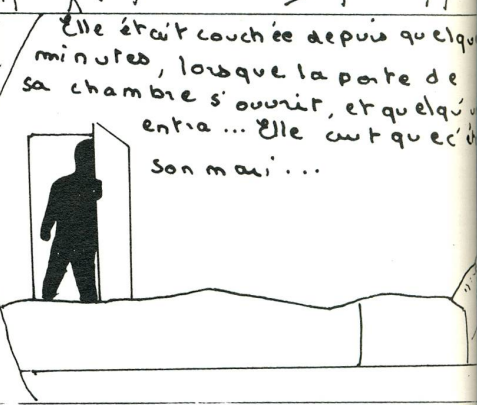 Elle était couchée depuis quelqu
minutes, lorsque la porte de
sa chambre s'ouvrit, et quelqu'u
entra ... Elle crut que c'ét
son mari ...